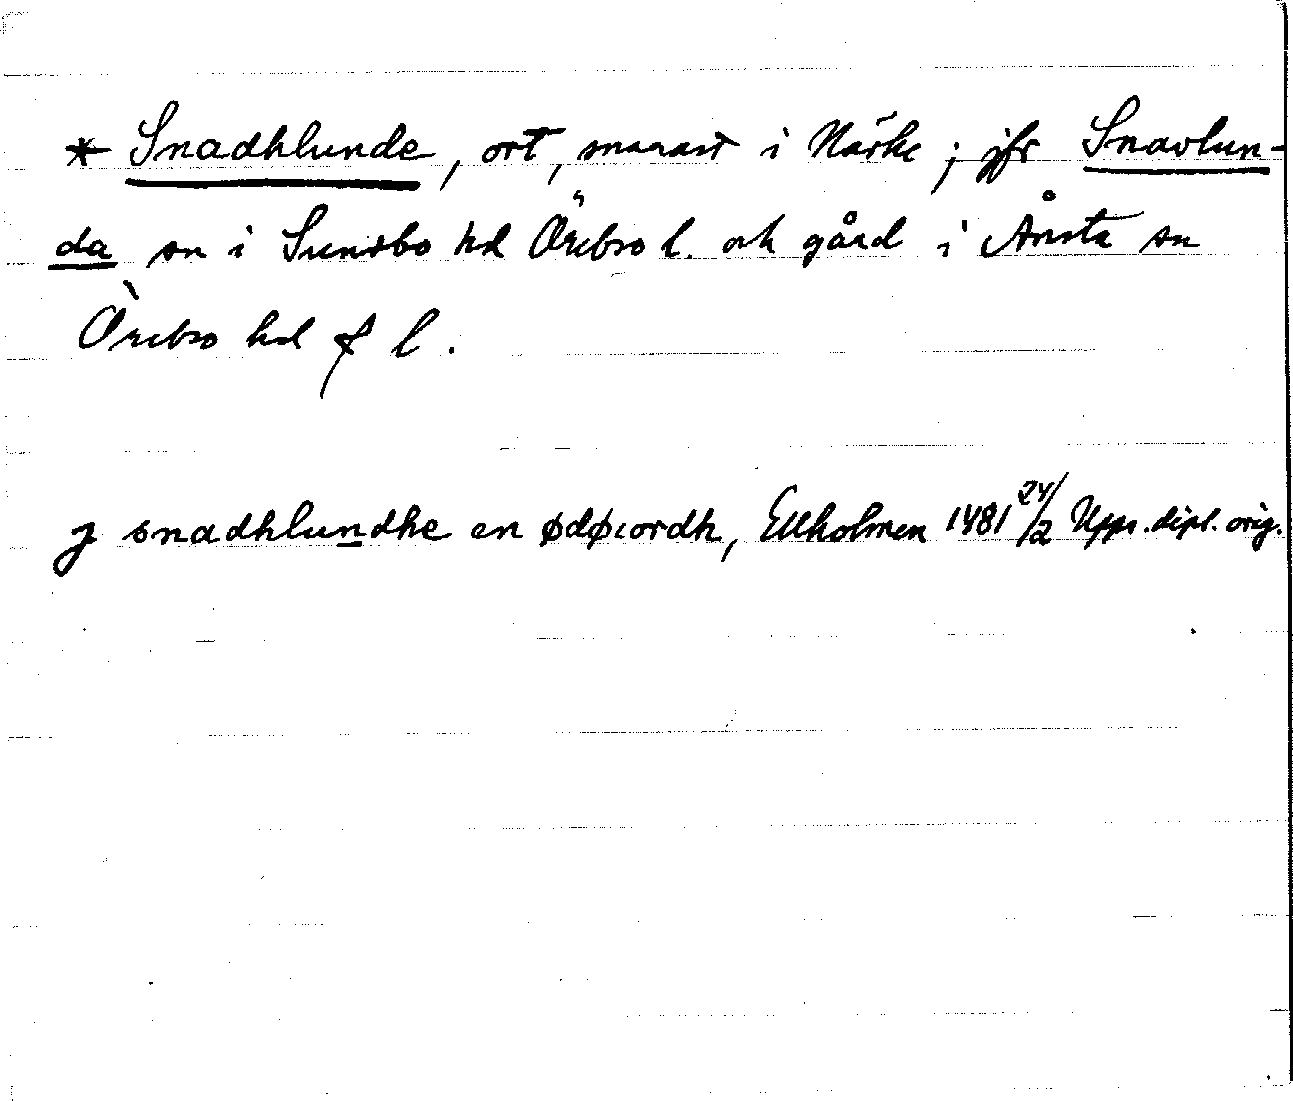 * Snadhlunde, ort, snarast i Närke; jfr Snavlun-
da sn i Sundbo hd Örebro l. och gård i Ånsta sn
Örebro hd & l.
j snadhlundhe en ødøiordh, Ekholmen 1481 24/2 Upps. dipl. orig.